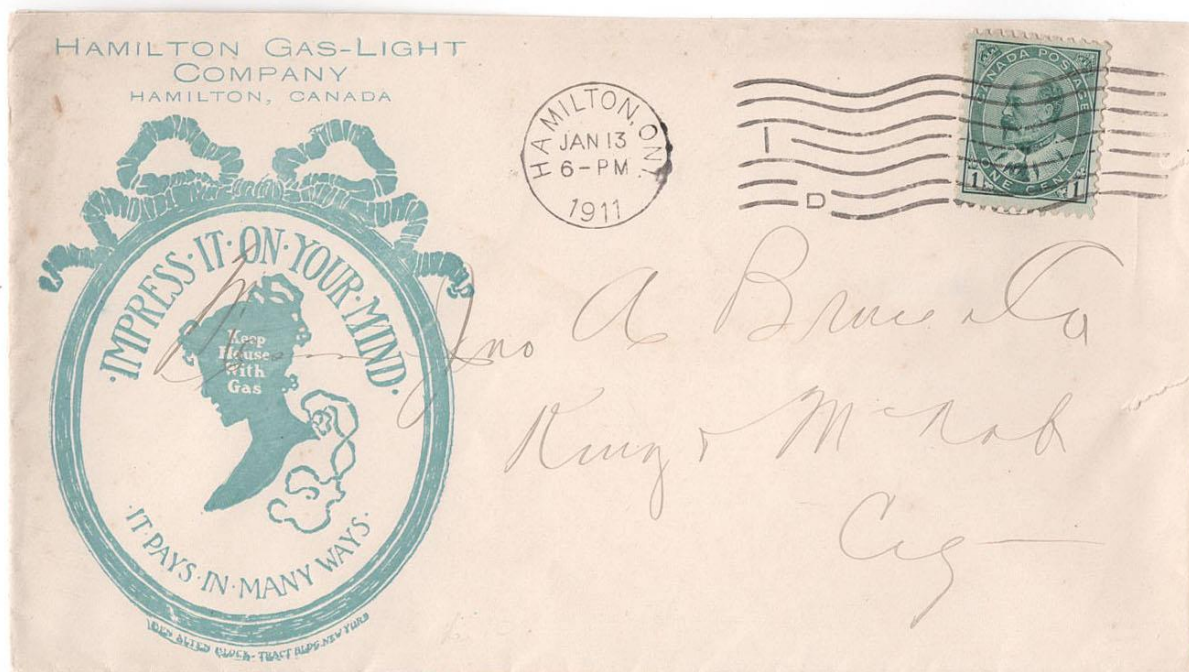 HAMILTON GAS-LIGHT
COMPANY
HAMILTON, CANADA
HAMILTON, ONT.
JAN 13
6-PM
1911
I
D
CANADA POSTAGE
ONE CENT
1 1
·IMPRESS·IT·ON·YOUR·MIND·
Keep
House
With
Gas
·IT·PAYS·IN·MANY·WAYS·
BLOCK-TRACT BLDG. NEW YORK
Jno A Bruce & Co
King & McNab
City